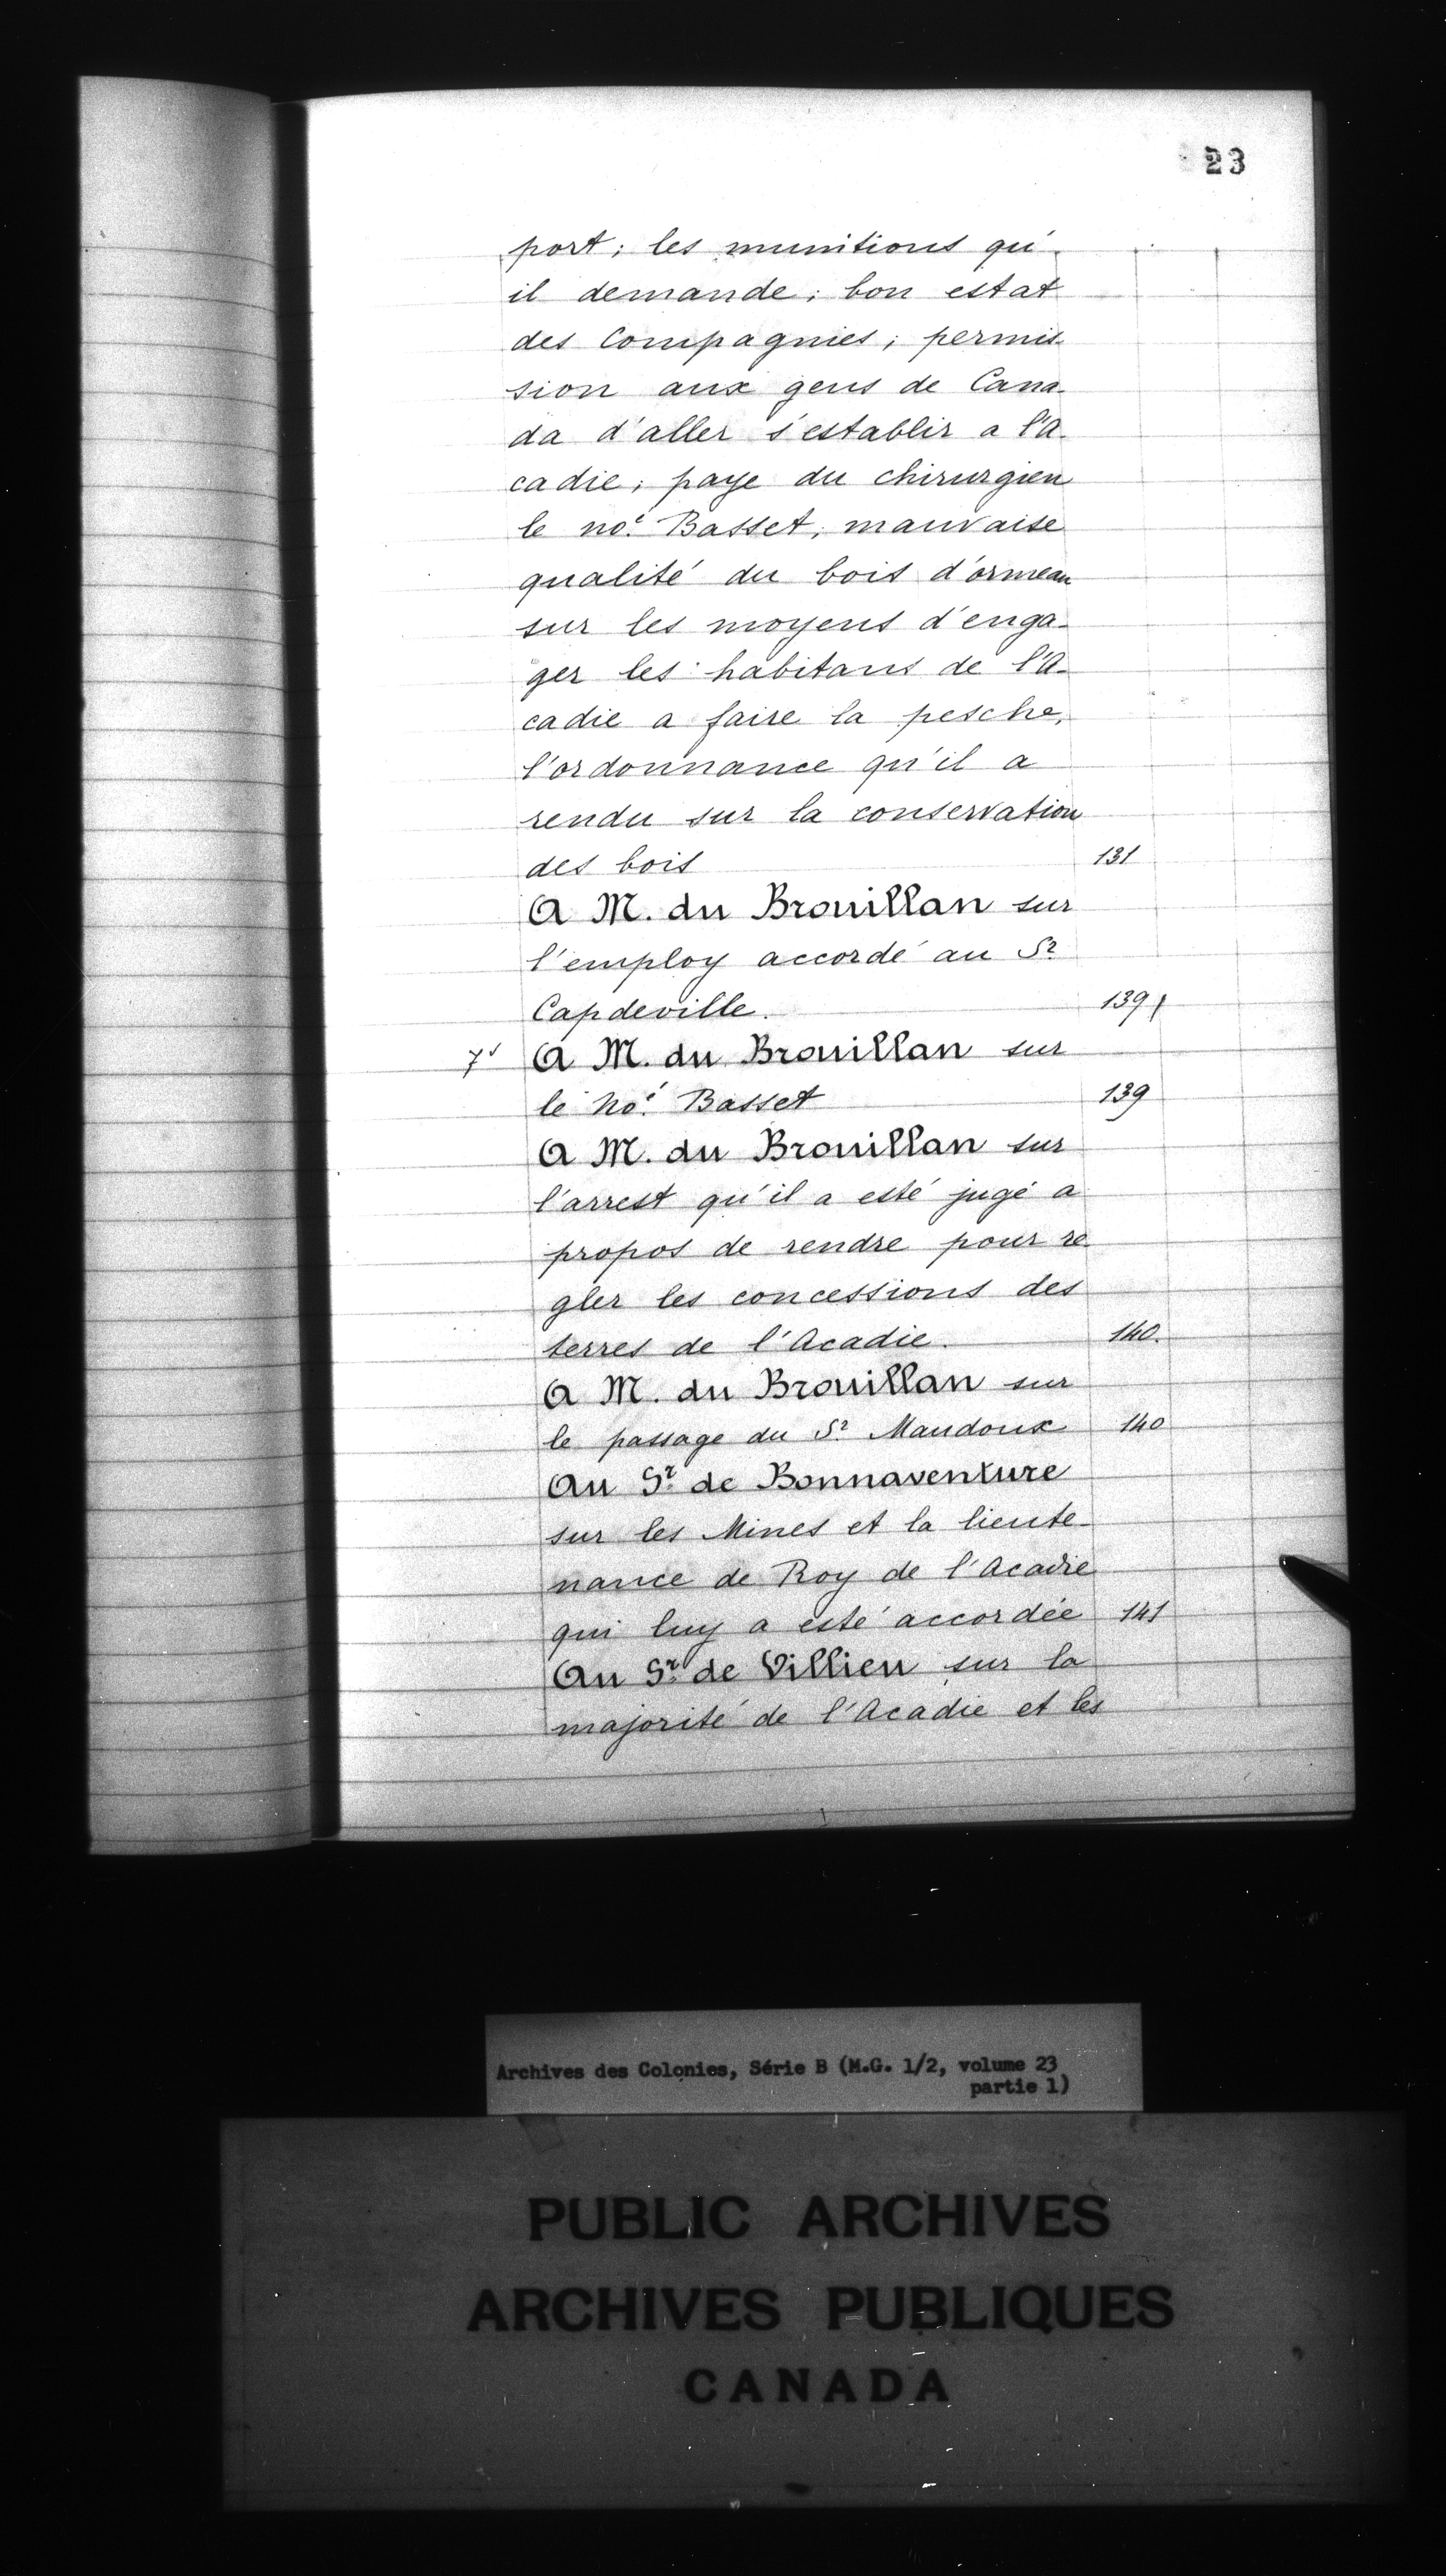 23
port; les munitions qu'
il demande; bon estat
des Compagnies; permis
sion aux gens de Cana-
da d'aller s'establir a l'A-
cadie; paye du chirurgien
le no.é Basset; mauvaise
qualité du bois d'ormeau
sur les moyens d'enga-
ger les habitans de l'A-
cadie a faire la pesche,
l'ordonnance qu'il a
rendu sur la conservation
des bois 131
A M. du Brouillan sur
l'employ accordé au Sr
Capdeville. 139
A M. du Brouillan sur
le no.é Basset 139
A M. du Brouillan sur
l'arrest qu'il a esté jugé a
propos de rendre pour re
gler les concessions des
terres de l'Acadie. 140.
A M. du Brouillan sur
le passage du Sr Maudoux 140
Au Sr de Bonnaventure
sur les Mines et la lieute-
nance de Roy de l'Acadie
qui luy a esté accordée 141
Au Sr de Villieu sur la
majorité de l'Acadie et les
Archives des Colonies, Série B (M.G. 1/2, volume 23
partie 1)
PUBLIC ARCHIVES
ARCHIVES PUBLIQUES
CANADA